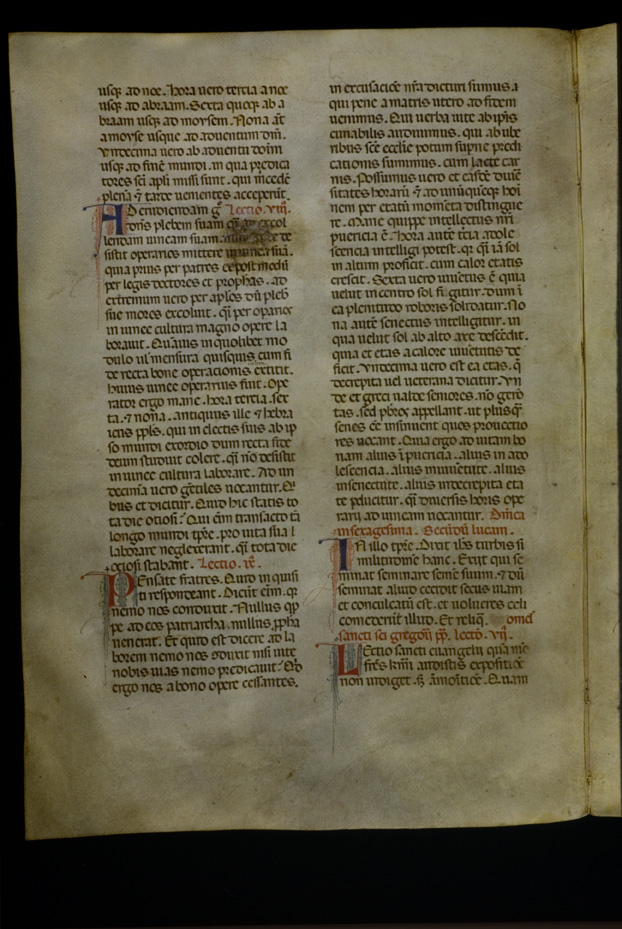 usq; ad noe. Hora uero tercia a noe
usq; ad abraam. Sexta quoq; ab a
braam usq; ad moysem. Nona aũt
a moyse usque ad aduentum dñi.
Vndecima uero ab aduentu domini
usq; ad finẽ mundi. in qua predica
tores sc̃i apl̃i missi sunt. qui mercedẽ
plenã ⁊ tarde uenientes acceperũt.
AD erudiendam g̃ Lectio .viij.
dñs plebem suam
lendam uineam suam de
sistit operarios mittere in uineã suã.
quia prius per patres ⁊ post modũ
per legis doctores et prophas. ad
extremum uero per aplõs dũ pleb
sue mores excoluit. q̃i per operarios
in uinee cultura magno opere la
borauit. Quãuis in quolibet mo
dulo uł mensura quisquis cum fi
de recta bone operacionis extitit.
huius uinee operarius fuit. Ope
rator ergo mane. hora tercia. sex
ta. ⁊ nona. antiquus ille ⁊ hebra
icus ppl̃s. qui in electis suis ab ip
so mundi exordio dum recta fide
deum studuit colere. q̃i nõ desistit
in uinee cultura laborare. Ad un
decimã uero gẽtiles uocantur. Q̃
bus et dicitur. Quid hic statis to
ta die otiosi. Qui eñ transacto tã
longo mundi tp̃re. pro uita sua l
laborare neglexerant. q̃i tota die
ociosi stabant. Lectio .ix.
PEnsate fratres. Quid in quisi
ti respondeant. Dicũt eĩm. qr
nemo nos conduxit. Nullus q̃p
pe ad eos patriarcha. nullus ꝓpha
uenerat. Et quid est dicere ad la
borem nemo nos conduxit nisi uite
nobis uias nemo predicauit. Q̃d
ergo nos a bono opere cessantes.
in excusaciõe nr̃a dicturi sumus. a
qui pene a matris utero ad fidem
uenimus. Qui uerba uite ab ip̃is
cunabilis audiuimus. qui ab ube
ribus sc̃e ecclie potum sup̃ne predi
cationis sumimus. cum lacte car
nis. Possumus uero et easdẽ diuer
sitates horarũ ⁊ ad unũquẽq; homi
nem per etatũ momẽta distingue
re. Mane quippe intellectus nr̃i
puericia ẽ. Hora autẽ tc̃ia adole
scencia intelligi potest. qr q̃i iã sol
in altum proficit. cum calor etatis
crescit. Sexta uero iuuẽtus ẽ quia
uelut in centro sol figitur. dum ĩ
ea plenitudo roboris solidatur. No
na autẽ senectus intelligitur. in
qua uelut sol ab alto axe descẽdit.
quia et etas a calore iuuẽtutis de
ficit. Vndecima uero est ea etas. q̃
decrepita uel ueterana dicitur. Vn
de et greci ualde seniores. nõ gerõ
tas. sed pb̃ros appellant. ut plusq̃
senes eẽ insinuent quos prouectio
res uocant. Quia ergo ad uitam bo
nam alius ĩ puericia. alius in ado
lescencia. alius in iuuẽtute. alius
in senectute. alius in decrepita eta
te ꝑducitur. q̃i diuersis horis ope
rarij ad uineam uocantur. Dñica
in sexagesima. Secũdũ lucam.
IN illo tp̃re. Dixit ih̃s turbis si
militudinẽ hanc. Exijt qui se
minat seminare semẽ suum. ⁊ dũ
seminat aliud cecidit secus uiam
et conculcatũ est. et uolucres celi
comederũt illud. Et reliq̃. omel̃
sancti sci gregorij pp̃. lectõ. vij.
LEctio sancti euangelij quã mõ
fr̃es km̃i audistis expositiõe
non indiget. s; ãmoniciõe. Quam